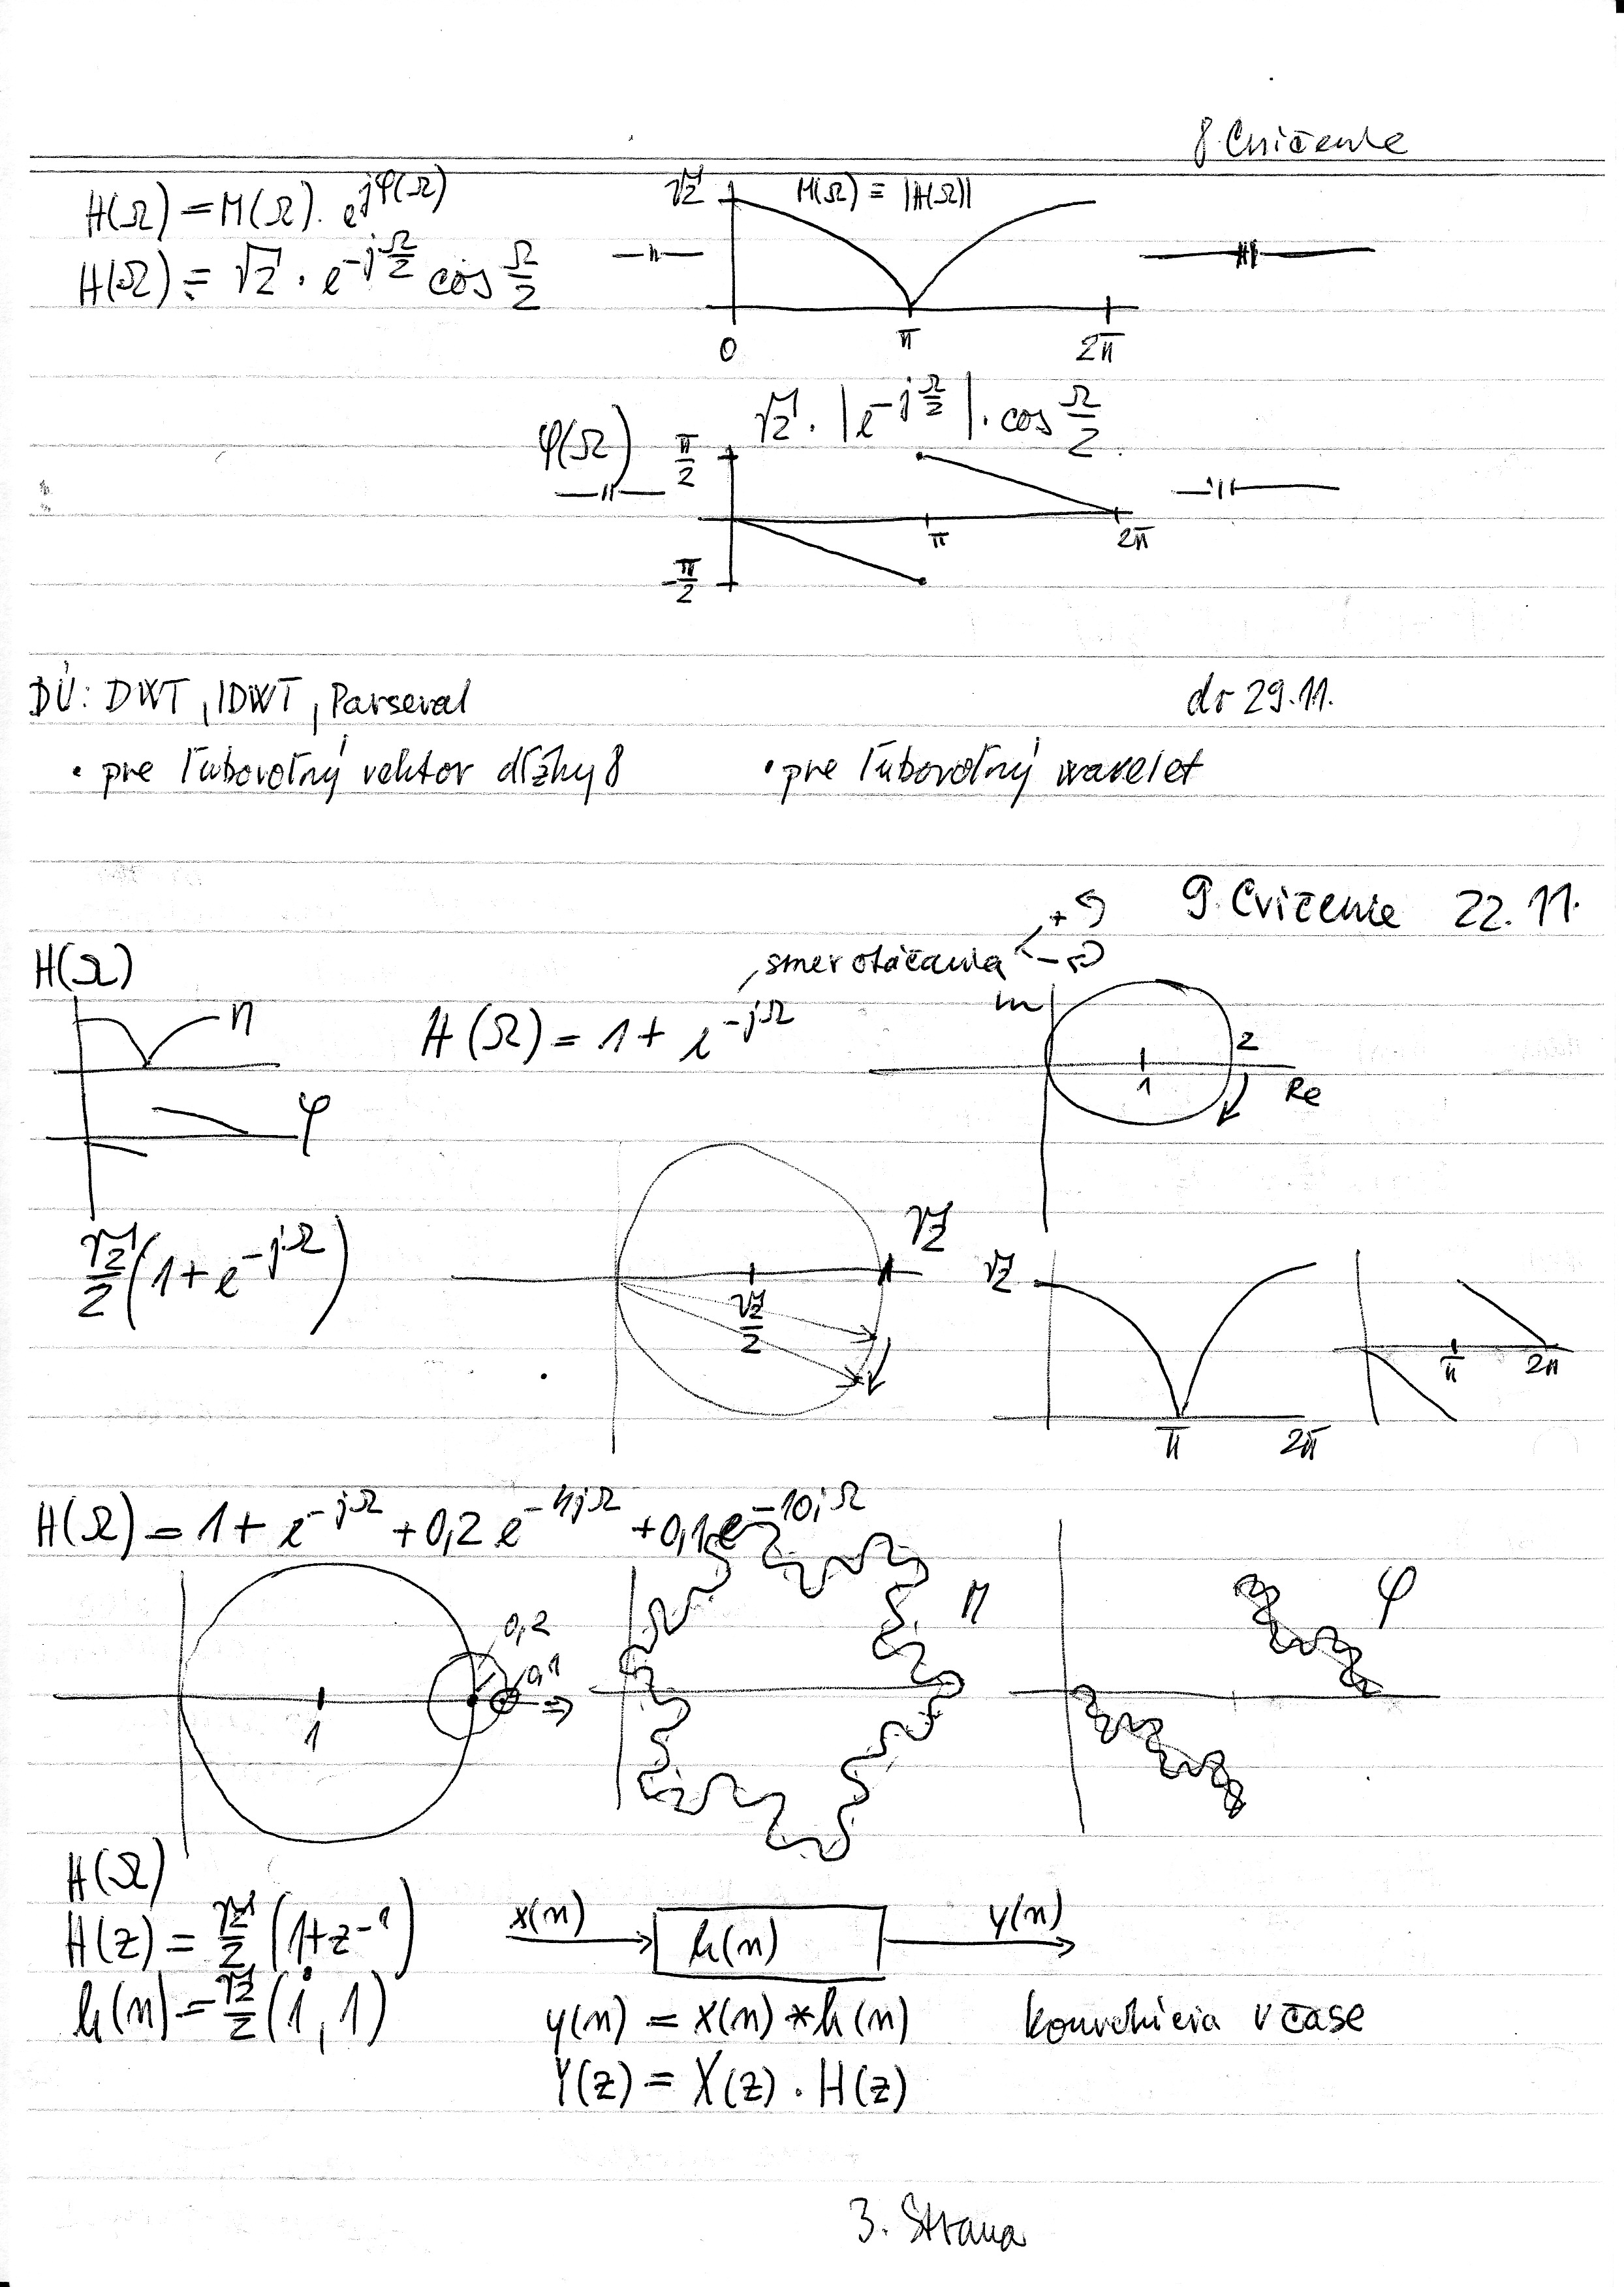 8. Cvičenie
H(Ω) = M(Ω). e^jφ(Ω)
√2 M(Ω) ≡ |H(Ω)|
H(Ω) = √2 . e^-jΩ/2 cos Ω/2
0 π 2π
√2 . |e^-jΩ/2| . cos Ω/2
φ(Ω) π/2
π 2π
-π/2
DÚ: DWT, IDWT, Parseval do 29.11.
• pre ľubovoľný vektor dĺžky 8 • pre ľubovoľný wavelet
9. Cvičenie 22.11.
H(Ω) smer otáčania + -
M H(Ω) = 1 + e^-jΩ Im 2
1 Re
φ
√2/2 (1 + e^-jΩ) √2 √2
√2/2 π 2π
π 2π
H(Ω) = 1 + e^-jΩ + 0,2 e^-4jΩ + 0,1 e^-10jΩ
0,2 M φ
0,1
1
H(Ω)
H(z) = √2/2 (1+z^-1) x(n) h(n) y(n)
h(n) = √2/2 (1, 1) y(n) = x(n) * h(n) konvolúcia v čase
Y(z) = X(z) . H(z)
3. Strana